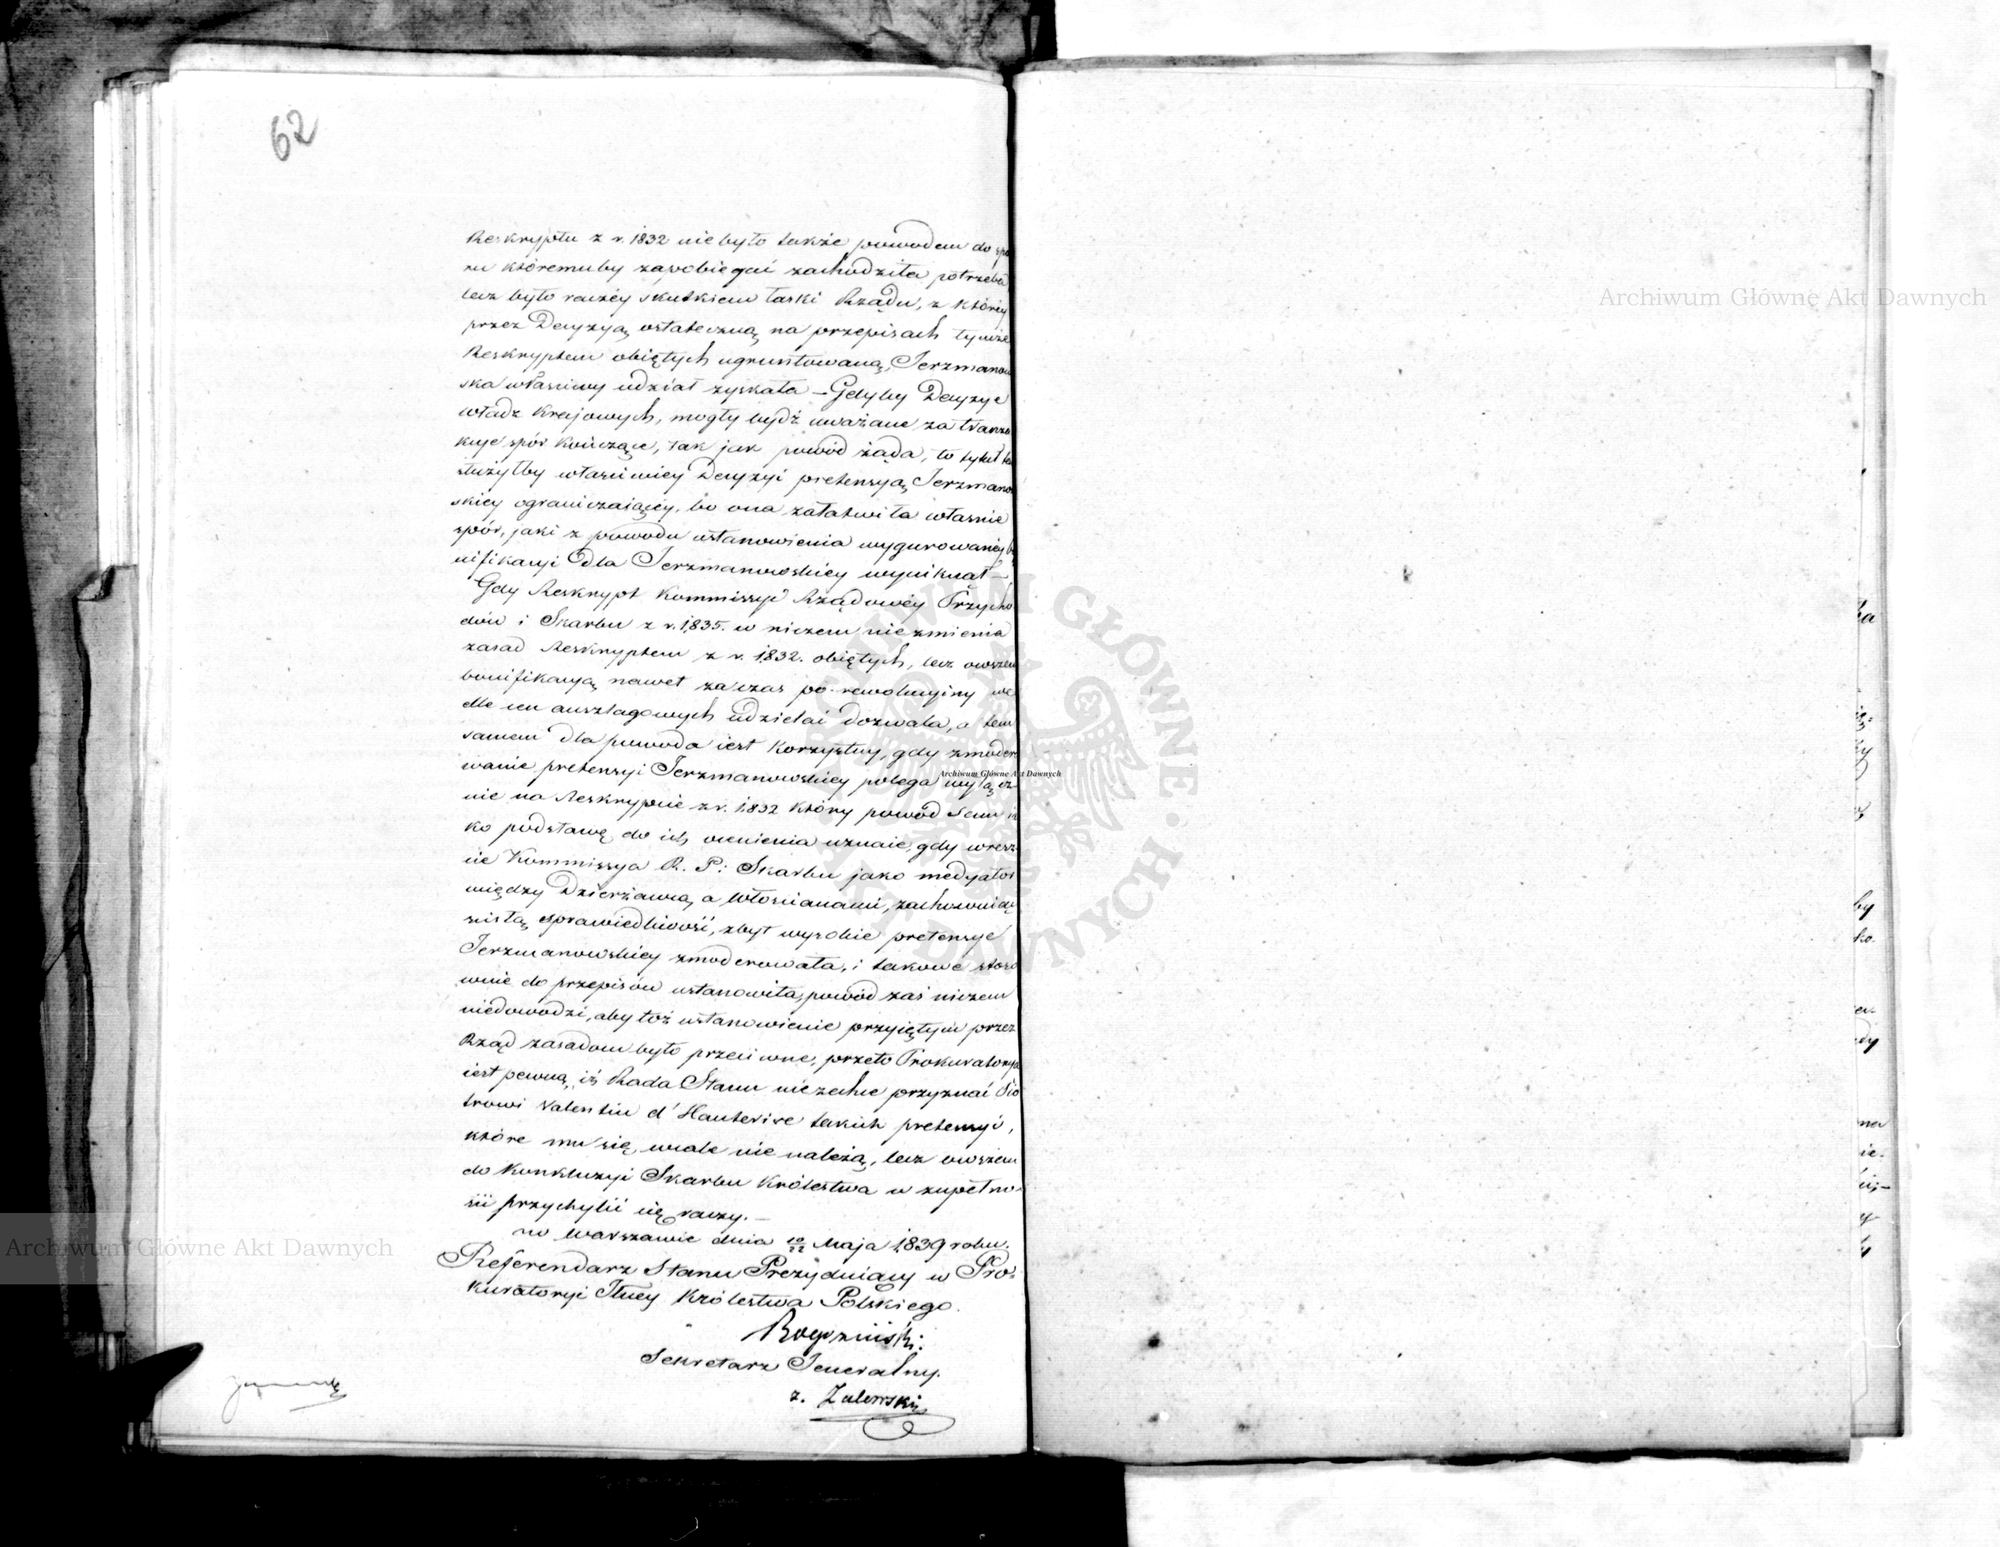 62
Reskryptu z r. 1832 niebyło także powodem do spo
ru któremuby zapobiegać zachodziła potrzeba
lecz było raczéy skutkiem łaski Rządu, z któréy
przez Decyzyą ostateczną na przepisach tymże
Reskryptem obiętych ugruntowaną, Jerzmanow
ska właściwy udział zyskała – Gdyby Decyzye
władz Krajowych, mogły bydź uważane za tranza
kcye spór kończące, tak jak powód żąda, to tytuł ten
służyłby właściwiey Decyzyi pretensyą Jerzmanow
skiey ograniczaiącéy, bo ona załatwiła własnie
spór, jaki z powodu ustanowienia wygurowanéy bo
nifikacyi dla Jerzmanowskiey wyniknął –
Gdy Reskrypt Kommissyi Rządowéy Przycho
dów i Skarbu z r. 1835. w niczem nie zmienia
zasad Reskryptem z r. 1832. obiętych, lecz owszem
bonifikacyą nawet za czas po-rewolucyiny we
dle cen anszlagowych udzielać dozwala, a tem
samem dla powoda iest korzystny, gdy zmodero
wanie pretensyi Jerzmanowskiey polega wyłącz-
nie na Reskrypcie z r. 1832 który powód sam ia
ko podstawę do ich ocenienia uznaie, gdy wresz
cie Kommissya R. P. i Skarbu jako medyator
między Dzierżawcą a Włościanami, zachowuiąc
scisłą sprawiedliwość, zbyt wysokie pretensye
Jerzmanowskiey zmoderowała, i takowe stoso
wnie do przepisów ustanowiła, powód zaś niczem
niedowodzi, aby toż ustanowienie przyiętym przez
Rząd zasadom było przeciwne, przeto Prokuratorya
iest pewną, iż Rada Stanu niezechce przyznać Pio
trowi Valentin d'Hauterive takich pretensyi,
które mu się wcale nie należą, lecz owszem
do Konkluzyi Skarbu Królestwa w zupełno-
ści przychylić się raczy. –
w Warszawie dnia 10/22 Maja 1839 roku.
Referendarz Stanu Prezyduiący w Pro-
kuratoryi Jlney Królestwa Polskiego.
Sekretarz Jeneralny.
z. Zalewski
Archiwum Główne Akt Dawnych
Archiwum Główne Akt Dawnych
Archiwum Główne Akt Dawnych